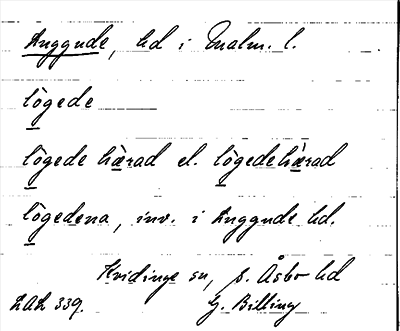 Luggude, hd i Malm. l.
lögede
lögede härad el. lögedehärad
lögedena, inv. i Luggude hd.
Hvidinge sn, s. Åsbo hd
LAL 339. G. Billing